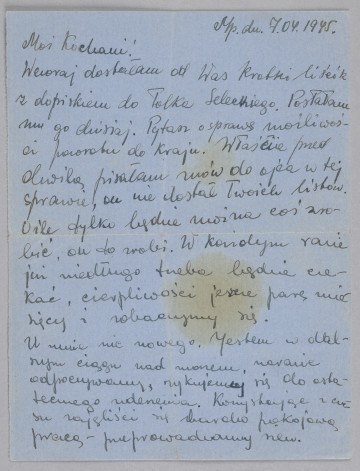 Mp. dn. 7.04.1945.
Moi Kochani!
Wczoraj dostałam od Was krótki liścik
z dopiskiem do Tolka Seleckiego. Posłałam
mu go dzisiaj. Pytasz o sprawę możliwoś-
ci powrotu do kraju. Właśnie przed
chwilą pisałam znów do ojca w tej
sprawie, on nie dostał Twoich listów.
O ile tylko będzie można coś zro-
bić, on to zrobi. W każdym razie
już niedługo trzeba będzie cze-
kać, cierpliwości jeszcze parę mie-
sięcy i zobaczymy się.
U mnie nic nowego. Jestem w dal-
szym ciągu nad morzem, narazie
odpoczywamy, szykujemy się do osta-
tecznego uderzenia. Korzystając z cza-
su zajęliśmy się bardzo pokojową
pracą - przeprowadzamy siew.